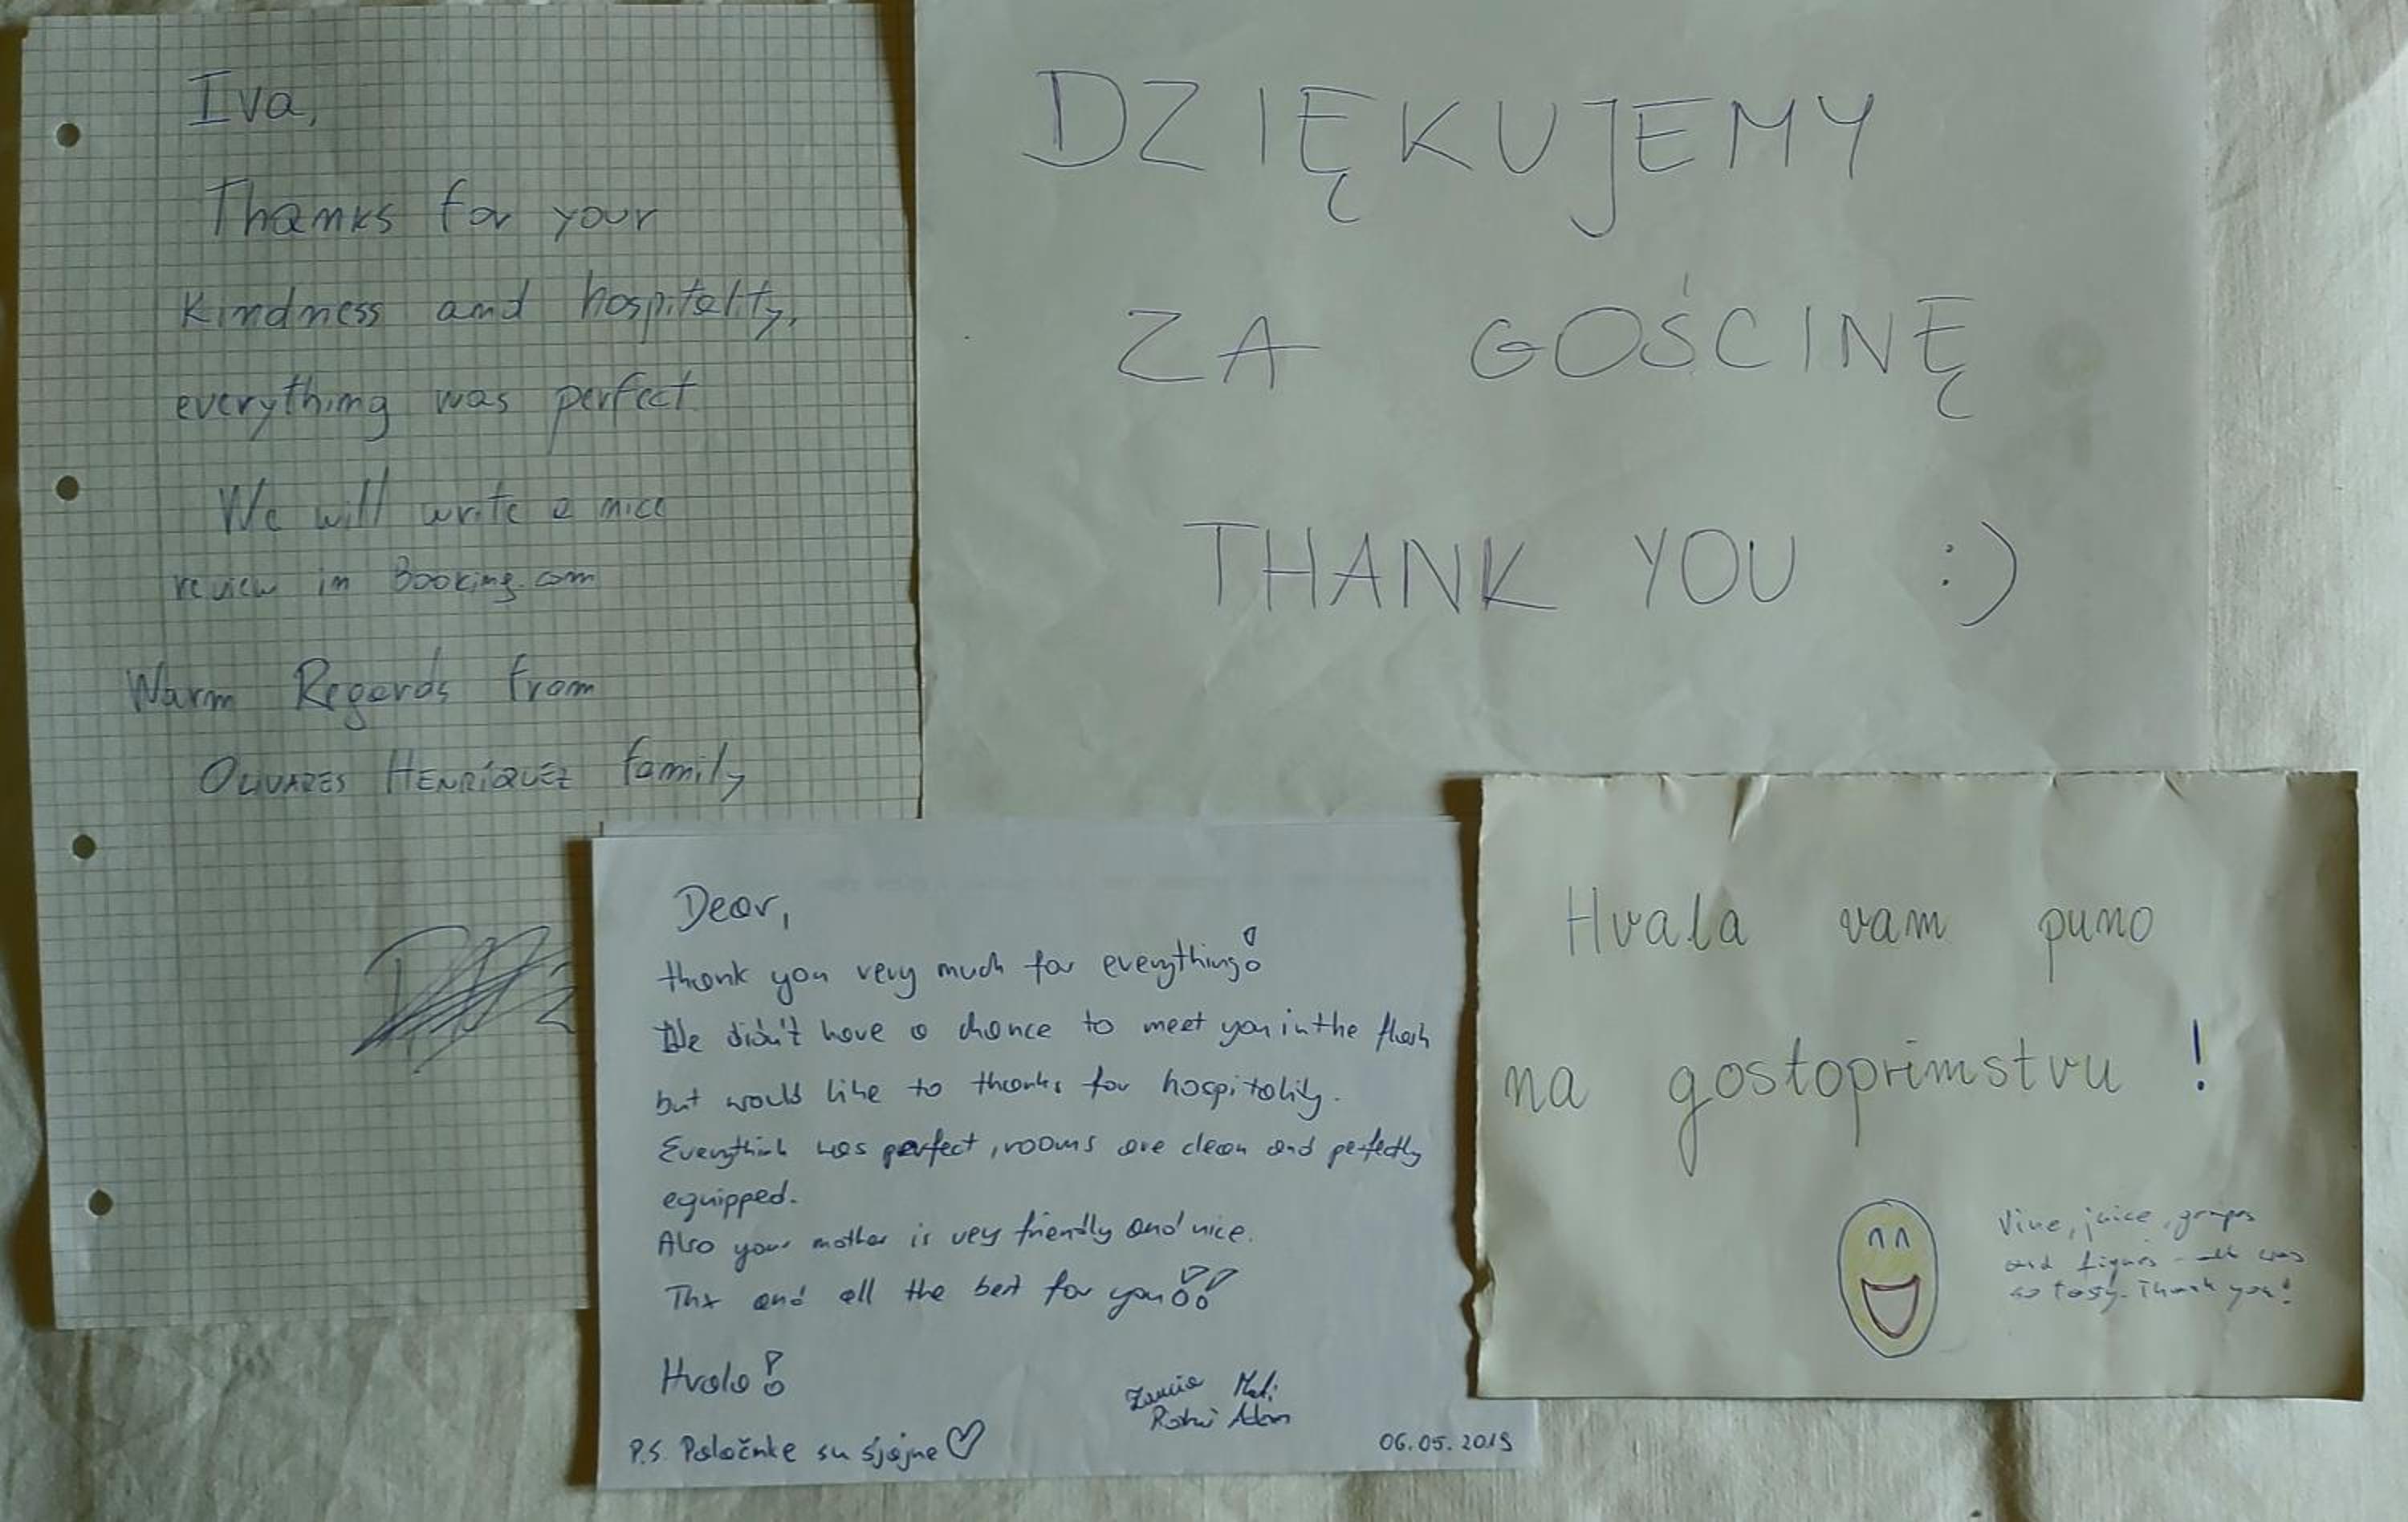 Iva,
Thanks for your
kindness and hospitalty,
everything was perfect
We will write a nice
review in Booking.com
Warm Regards from
OLIVARES HENRÍQUEZ family
DZIĘKUJEMY
ZA GOŚCINĘ
THANK YOU :)
Dear,
thank you very much for everything!
We didn't have a chance to meet you in the flesh
but would like to thanks for hospitality.
Everythink was perfect, rooms are clean and perfectly
equipped.
Also your mother is very friendly and nice.
Thx and all the best for you!!
Hvala!
Adam
P.S. Palačinke su sjajne ♡
06.05.2019
Hvala vam puno
na gostoprimstvu !
Vine, juice, grapes
and figues - all was
so tasty. Thank you!